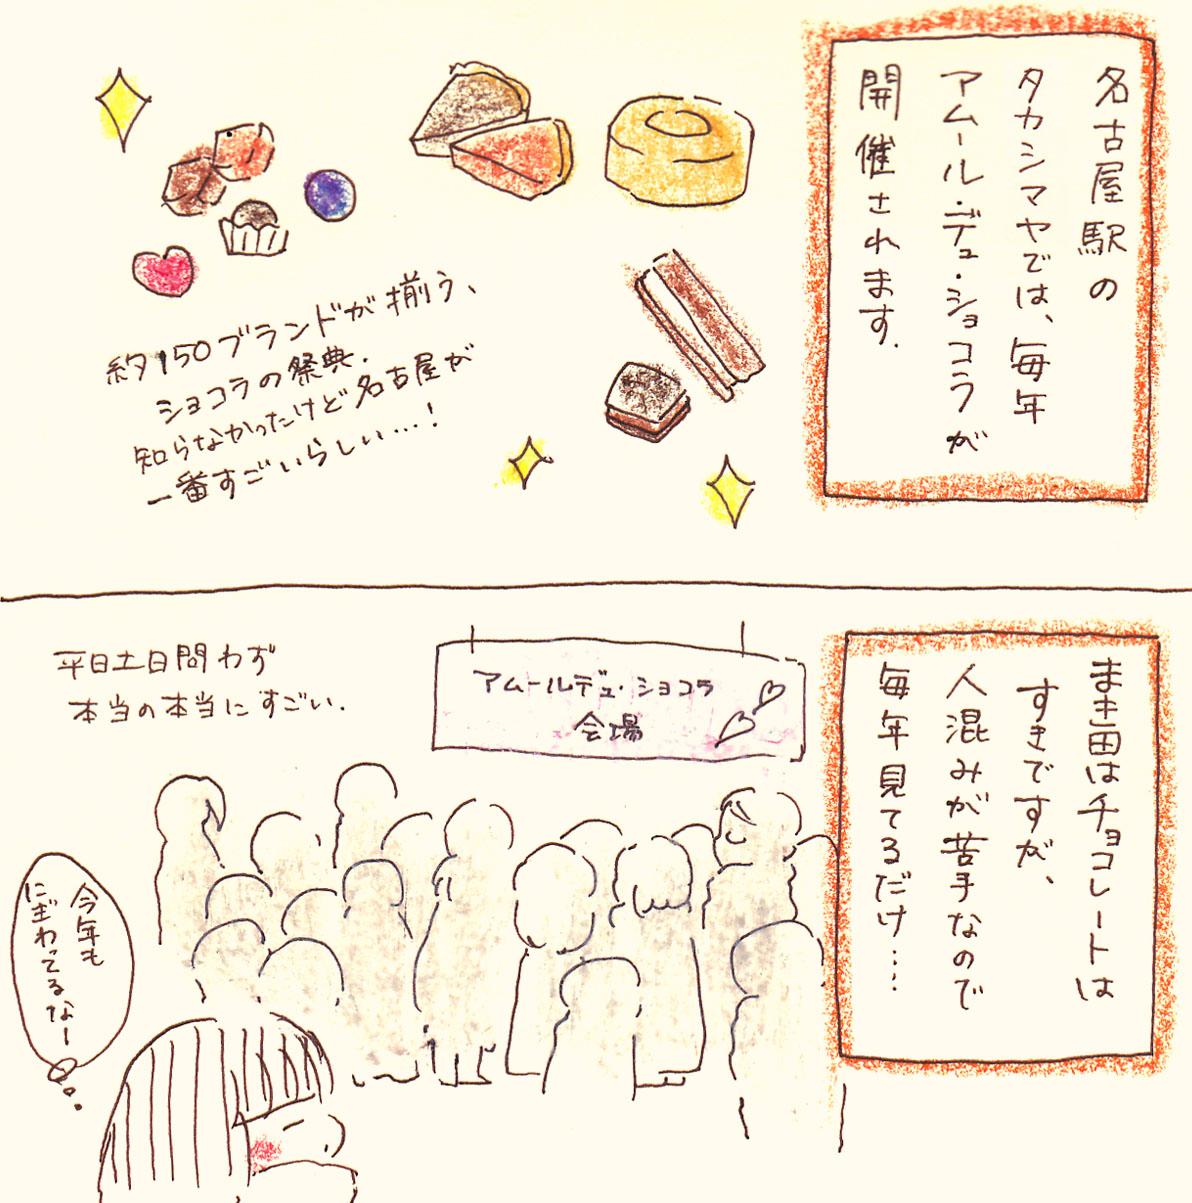 名古屋駅の
タカシマヤでは、毎年
アムール・デュ・ショコラが
開催されます.
約150ブランドが揃う、
ショコラの祭典.
知らなかったけど名古屋が
一番すごいらしい…!
まき田はチョコレートは
すきですが、
人混みが苦手なので
毎年見てるだけ……
アムールデュ・ショコラ
会場
平日土日問わず
本当の本当にすごい.
今年も
にぎわってるなー